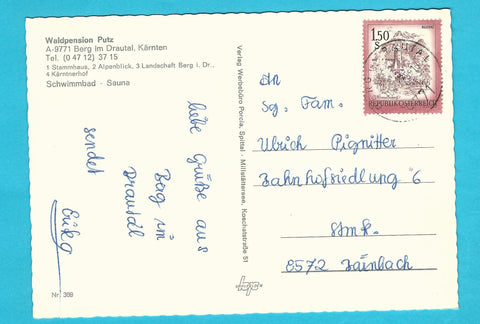 Waldpension Putz
A-9771 Berg im Drautal, Kärnten
Tel. (0 47 12) 37 15
1 Stammhaus, 2 Alpenblick, 3 Landschaft Berg i. Dr.,
4 Kärntnerhof
Schwimmbad - Sauna
liebe Grüße aus
Berg im
Drautal
sendet
Nr. 369
Verlag Werbebüro Porcia, Spittal - Millstättersee, Koschatstraße 51
1.50
S
REPUBLIK ÖSTERREICH
An
Sg. Fam.
Ulrich Pignitter
Bahnhofsiedlung 6
Stmk.
8572 Bainbach